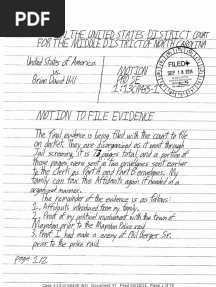 PDF
IN THE UNITED STATES DISTRICT COURT
FOR THE MIDDLE DISTRICT OF NORTH CAROLINA
United States of America
vs.
Brian David Hill
MOTION
PRO SE
1:13CR435-1
FILED
SEP 18 2014
MOTION TO FILE EVIDENCE
The final evidence is being filed with the court to file
on docket. They are disorganized as it went through
Jail screening, it is pages total, and a portion of
those pages were sent in two envelopes sent earlier
to the Clerk as Part A and Part B envelopes. My
family can tax the Affidavits again if needed in a
organized manner.
The remainder of the evidence is as follows:
1. Affidavits introduced from my family.
2. Proof of my political involvement with the town of
Mayodan prior to the Mayodan Police raid.
3. Proof I had made a enemy of Phil Berger Sr.
prior to the police raid.
page 1/2
Case 1:13-cr-00435-WO Document 37 Filed 09/18/14 Page 1 of 75